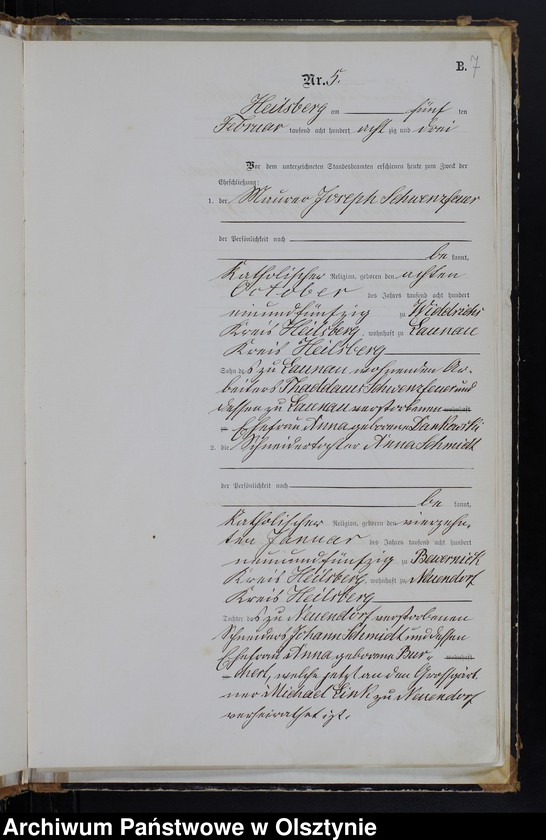 B. 7
Nr. 5.
Heilsberg am fünf ten
Februar tausend acht hundert acht zig und drei
Vor dem unterzeichneten Standesbeamten erschienen heute zum Zweck der
Eheschließung:
1. der Maurer Joseph Schwenzfeuer
der Persönlichkeit nach
be kannt,
katholischer Religion, geboren den achten
October des Jahres tausend acht hundert
neunundfünfzig zu
Kreis Heilsberg, wohnhaft zu Launau
Kreis Heilsberg
Sohn des zu Launau wohnenden Ar-
beiters Thaddaeus Schwenzfeuer und
dessen zu Launau verstorbenen wohnhaft
zu Ehefrau Anna geborene Dankowski
2. die Schneidertochter Anna Schmidt
der Persönlichkeit nach
be kannt,
katholischer Religion, geboren den vierzehn-
ten Januar des Jahres tausend acht hundert
neunundfünfzig zu Bewernick
Kreis Heilsberg, wohnhaft zu Neuendorf
Kreis Heilsberg
Tochter des zu Neuendorf verstorbenen
Schneiders Johann Schmidt und dessen
Ehefrau Anna geborene wohnhaft
welche jetzt an den Großgärt-
ner Michael Link zu Neuendorf
verheirathet ist.
Archiwum Państwowe w Olsztynie